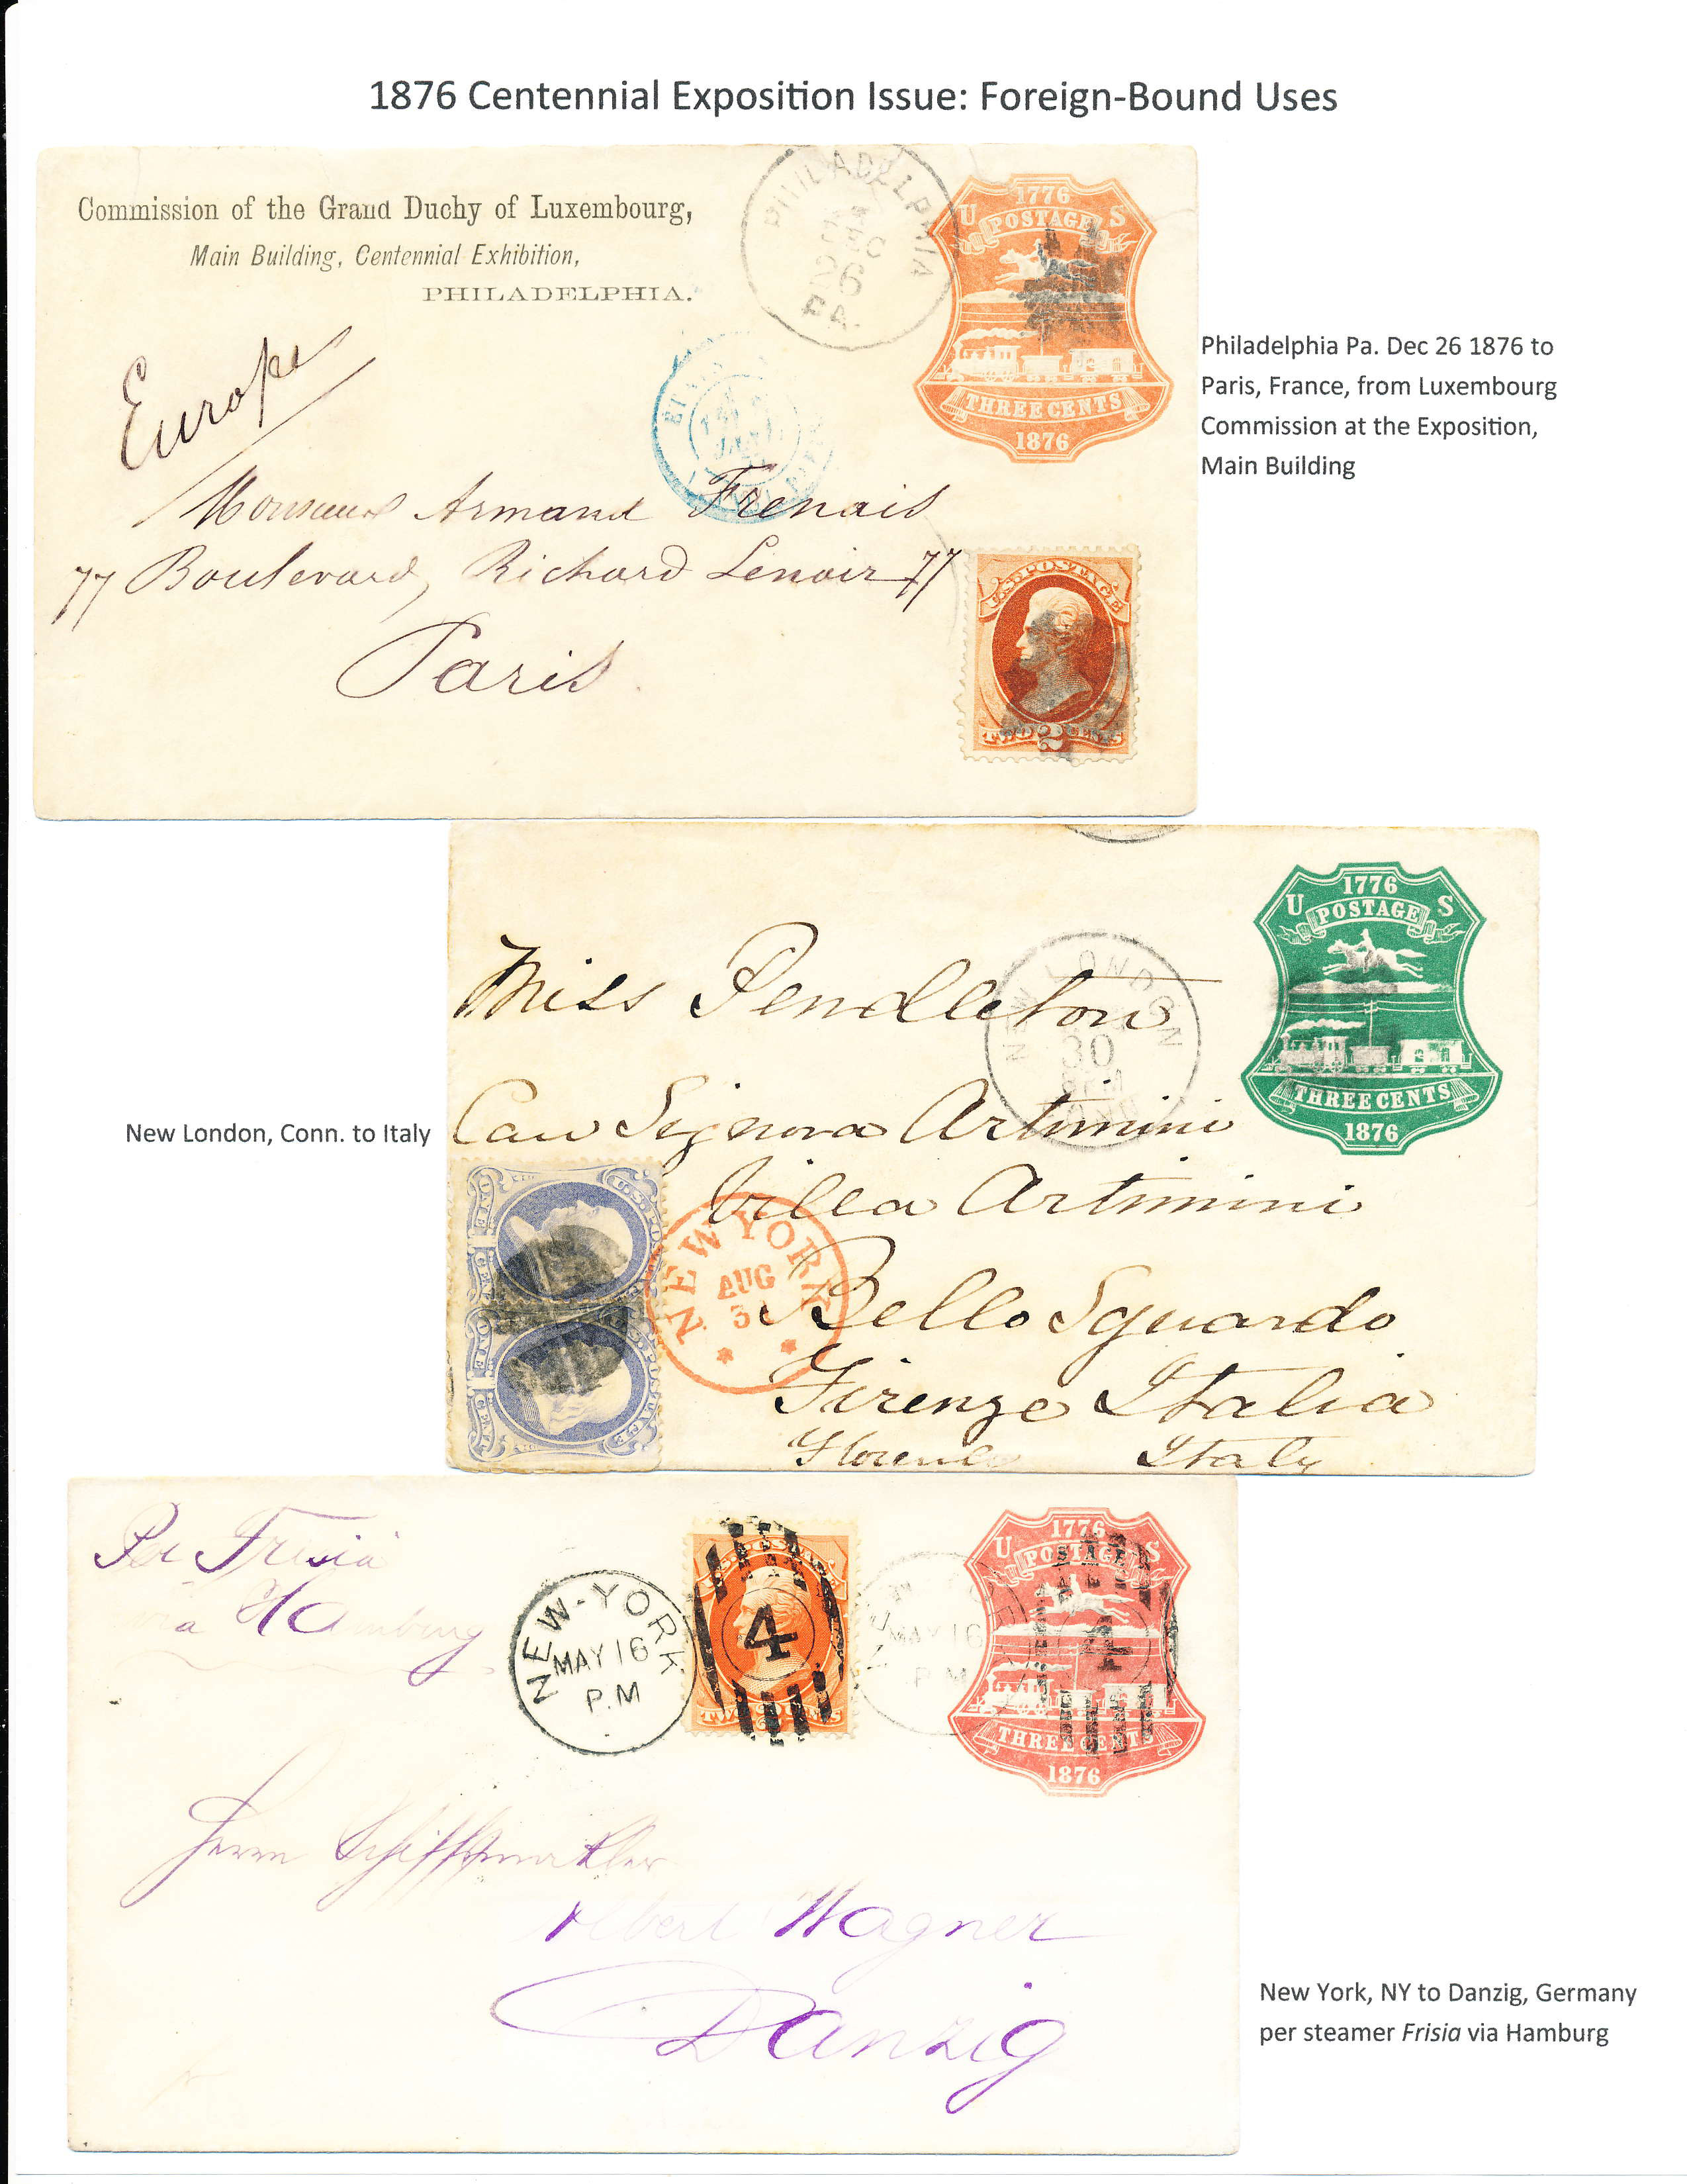 1876 Centennial Exposition Issue: Foreign-Bound Uses
Commission of the Grand Duchy of Luxembourg,
Main Building, Centennial Exhibition,
PHILADELPHIA.
PHILADELPHIA
DEC
26
PA.
1776
U POSTAGE S
THREE CENTS
1876
Europe
Monsieur Armand Frenais
77 Boulevard Richard Lenoir 77
Paris
U.S. POSTAGE
TWO 2 CENTS
Philadelphia Pa. Dec 26 1876 to
Paris, France, from Luxembourg
Commission at the Exposition,
Main Building
1776
U POSTAGE S
THREE CENTS
1876
NEW LONDON
30
Miss Pendleton
Care Signora Artimini
Villa Artimini
Bello Sguardo
Firenze Italia
Florence Italy
NEW YORK
AUG
31
U.S. POSTAGE
ONE CENT
U.S. POSTAGE
ONE CENT
New London, Conn. to Italy
Per Frisia
via Hamburg
NEW-YORK
MAY 16
P.M
4
U.S. POSTAGE
TWO CENTS
NEW YORK
MAY 16
P.M
4
1776
U POSTAGE S
THREE CENTS
1876
Herrn Schiffsmakler
Albert Wagner
Danzig
New York, NY to Danzig, Germany
per steamer Frisia via Hamburg